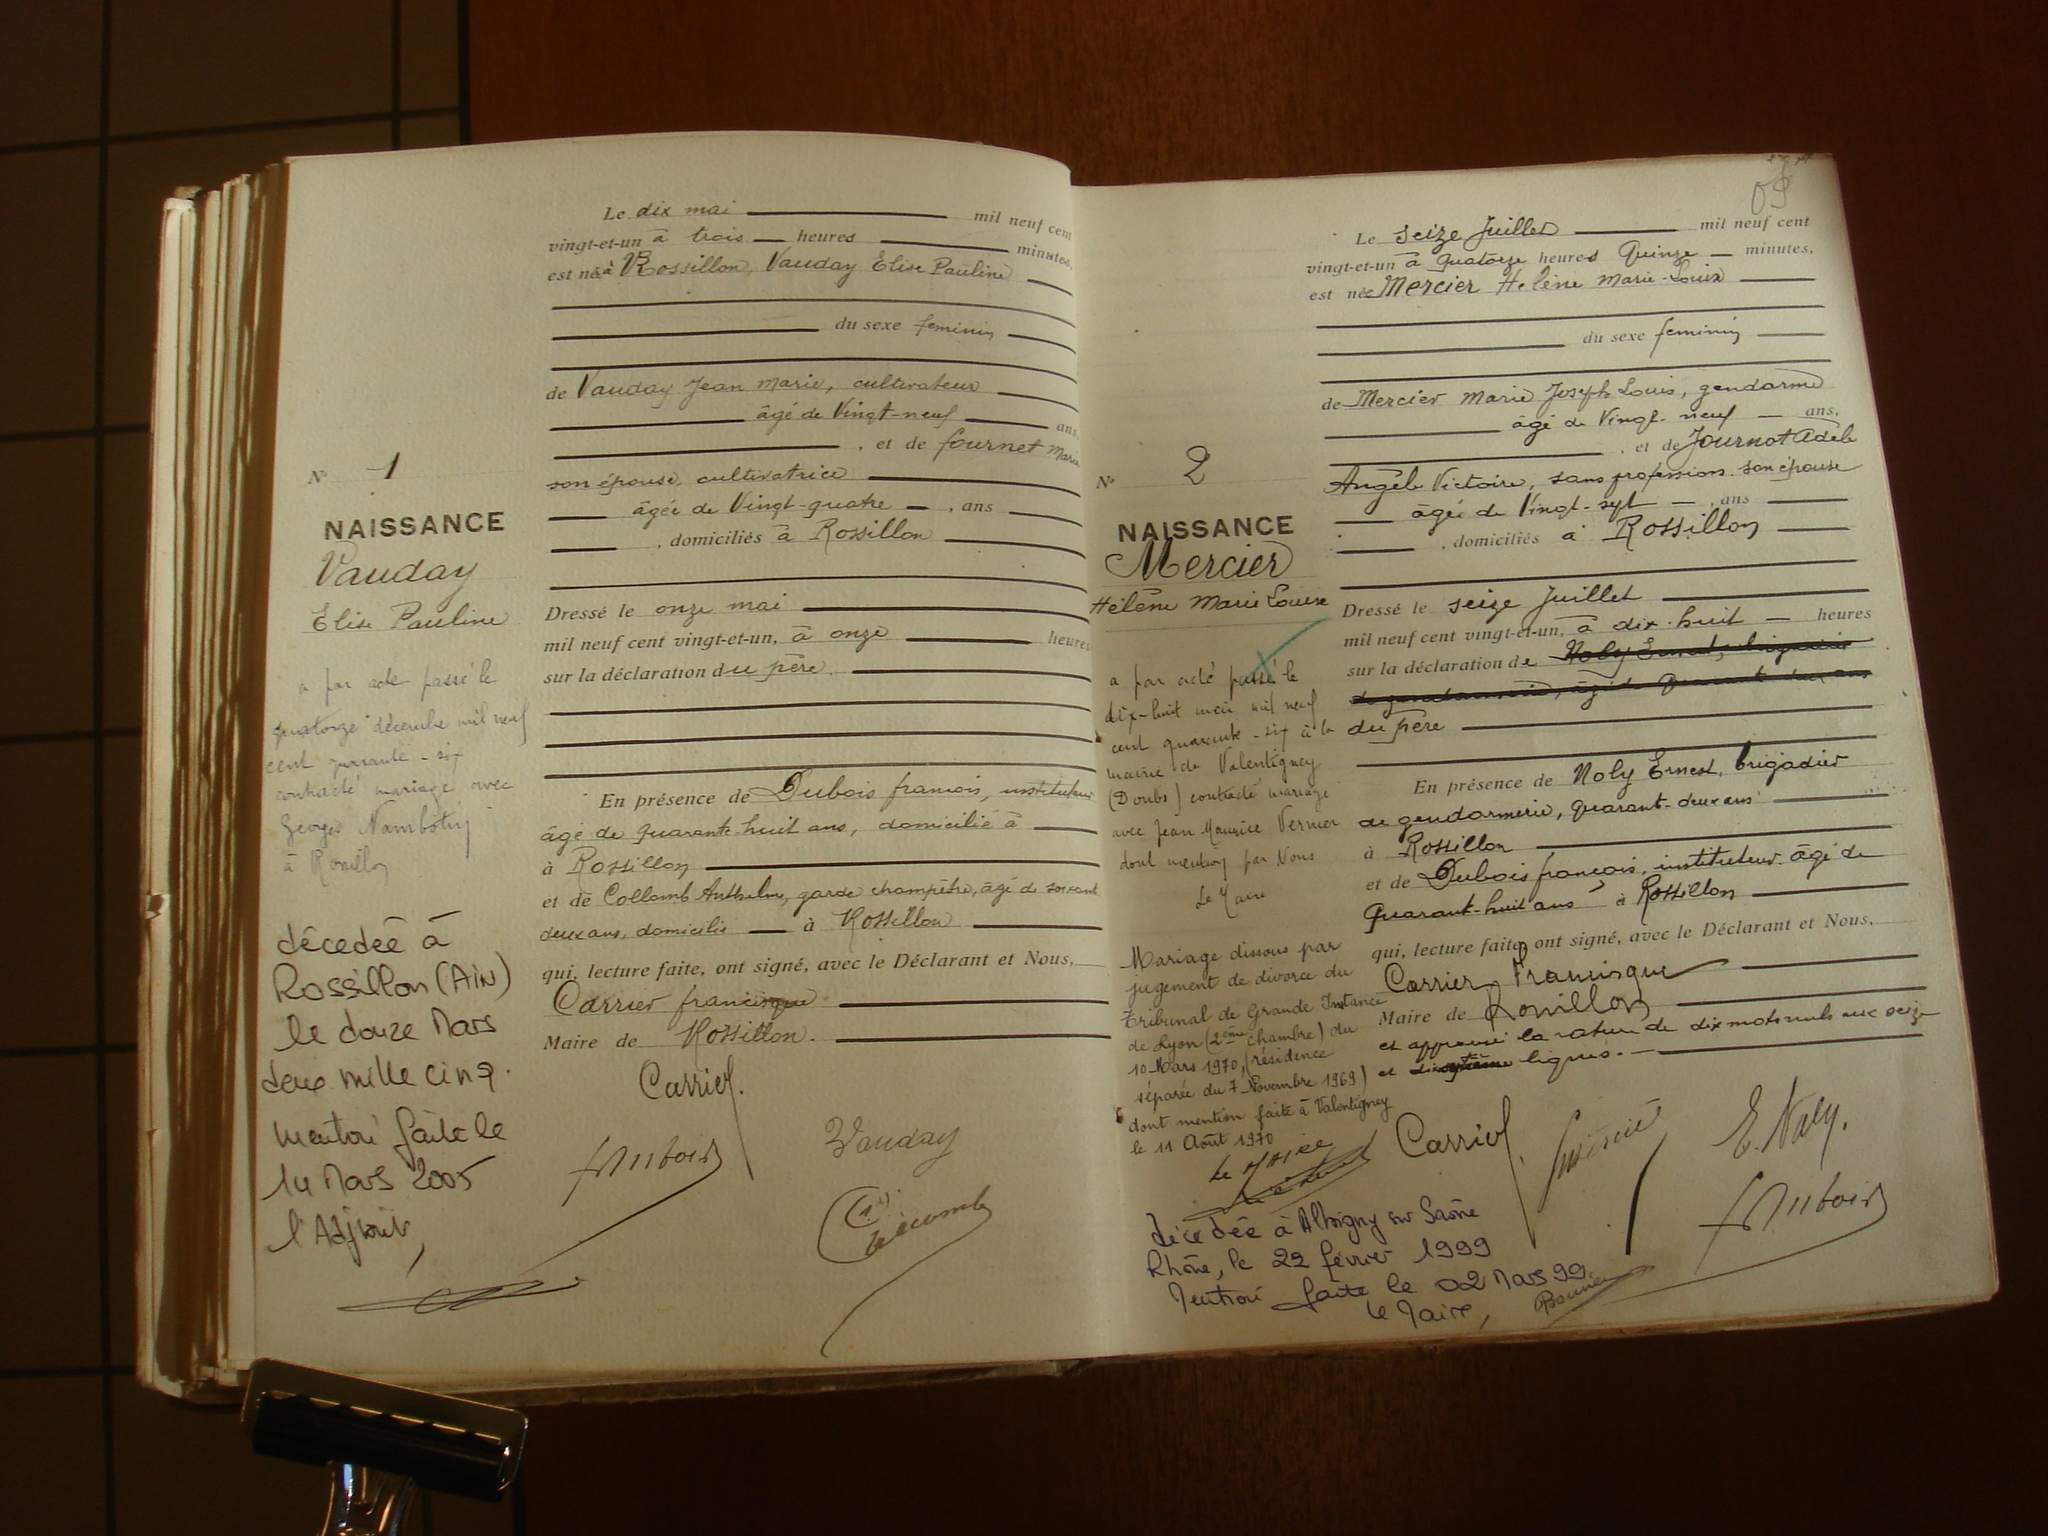 Le dix mai mil neuf cent
vingt-et-un à trois heures minutes,
est née à Rossillon, Vauday Elise Pauline
du sexe feminin
de Vauday Jean Marie, cultivateur
âgé de Vingt-neuf ans,
, et de fournet Marie
son épouse, cultivatrice
âgée de Vingt-quatre , ans
, domiciliés à Rossillon
Dressé le onze mai
mil neuf cent vingt-et-un, à onze heures
sur la déclaration du père
En présence de Dubois francois, instituteur
âgé de quarante-huit ans, domicilié à
à Rossillon
et de Collomb Anthelm, garde champêtre, âgé de soixant
deux ans, domicilié à Rossillon
qui, lecture faite, ont signé, avec le Déclarant et Nous,
Carrier francisque
Maire de Rossillon.
Carrier.
Dubois
Vauday
No 1
NAISSANCE
Vauday
Elise Pauline
a par acte passé le
quatorze décembre mil neuf
cent quarante-six
contracté mariage avec
Georges
à Rossillon
décedée à
Rossillon (AIN)
le douze Mars
deux mille cinq.
Mention faite le
14 Mars 2005
l'Adjoint,
Le seize Juillet mil neuf cent
vingt-et-un à quatorze heures Quinze minutes,
est née Mercier Helène Marie-Louise
du sexe feminin
de Mercier Marie Joseph Louis, gendarme
âgé de Vingt-neuf ans,
, et de Journot Adele
Angèle Victoire, sans profession son épouse
âgée de Vingt-sept , ans
, domiciliés à Rossillon
Dressé le seize Juillet
mil neuf cent vingt-et-un, à dix-huit heures
sur la déclaration de Noly Ernest, brigadier
de gendarmerie, âgé de quarante deux ans
du père
En présence de Noly Ernest, brigadier
de gendarmerie, quarant-deux ans
à Rossillon
et de Dubois françois, instituteur âgé de
Quarant-huit ans à Rossillon
qui, lecture faite, ont signé, avec le Déclarant et Nous,
Carrier Francisque
Maire de Rossillon
et approuvé la rature de dix mots nuls aux seize
et dixseptième lignes.
Carrier.
E. Noly.
Dubois
No 2
NAISSANCE
Mercier
Hélène Marie Louise
a par acte passé le
dix-huit mai mil neuf
cent quarante-six à la
mairie de Valentigney
(Doubs) contracté mariage
avec Jean Maurice Vernier
dont mention par Nous
Le Maire
Mariage dissous par
jugement de divorce du
Tribunal de Grande Instance
de Lyon (2ème chambre) du
10 Mars 1970, (résidence
séparée du 7 Novembre 1969)
dont mention faite à Valentigney
le 11 Août 1970
Le Maire
décédée à Albigny sur Saône
Rhône, le 22 février 1999
Mention faite le 02 Mars 99
le Maire,